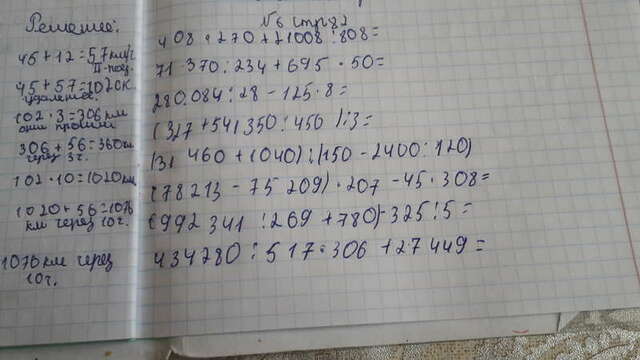 Решение:
45+12=57км/ч
II-поезд.
45+57=102 ск.
удаления.
102·3=306км
они прошли
306+56=360км
через 3ч.
102·10=1020км
1020+56=1076
км через 10ч.
1076км через
10ч.
№6 стр82
408·270+21008:808=
71 370:234+695·50=
280.084:28-125·8=
(327+541350:450):3=
(31 460+1040):(150-2400:120)
(78213-75209)·207-45·308=
(992341:269+780)-325:5=
434280:517·306+27449=